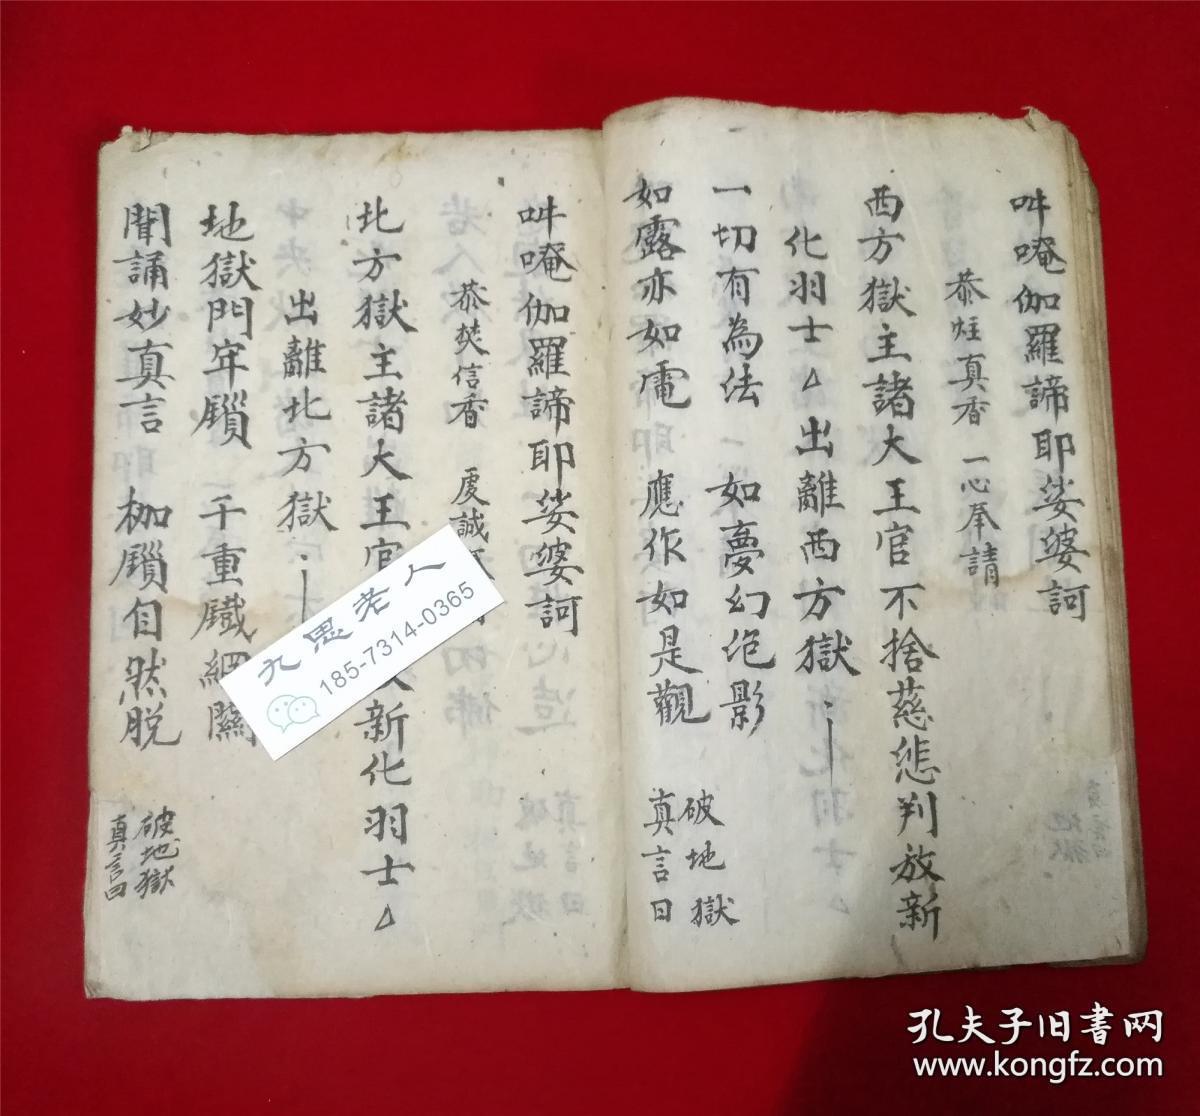 吽唵伽羅諦耶娑婆訶
恭炷真香 一心奉請
西方獄主諸大王官不捨慈悲判放新
化羽士△出離西方獄
一切有為法 一如夢幻泡影
如露亦如電 應作如是觀
破地獄
真言曰
吽唵伽羅諦耶娑婆訶
恭焚信香 虔誠
北方獄主諸大王官
新化羽士△
出離北方獄
地獄門牢鎖 千重鐵網關
聞誦妙真言 枷鎖自然脱
破地獄
真言曰
九思老人
185-7314-0365
孔夫子旧書网
www.kongfz.com